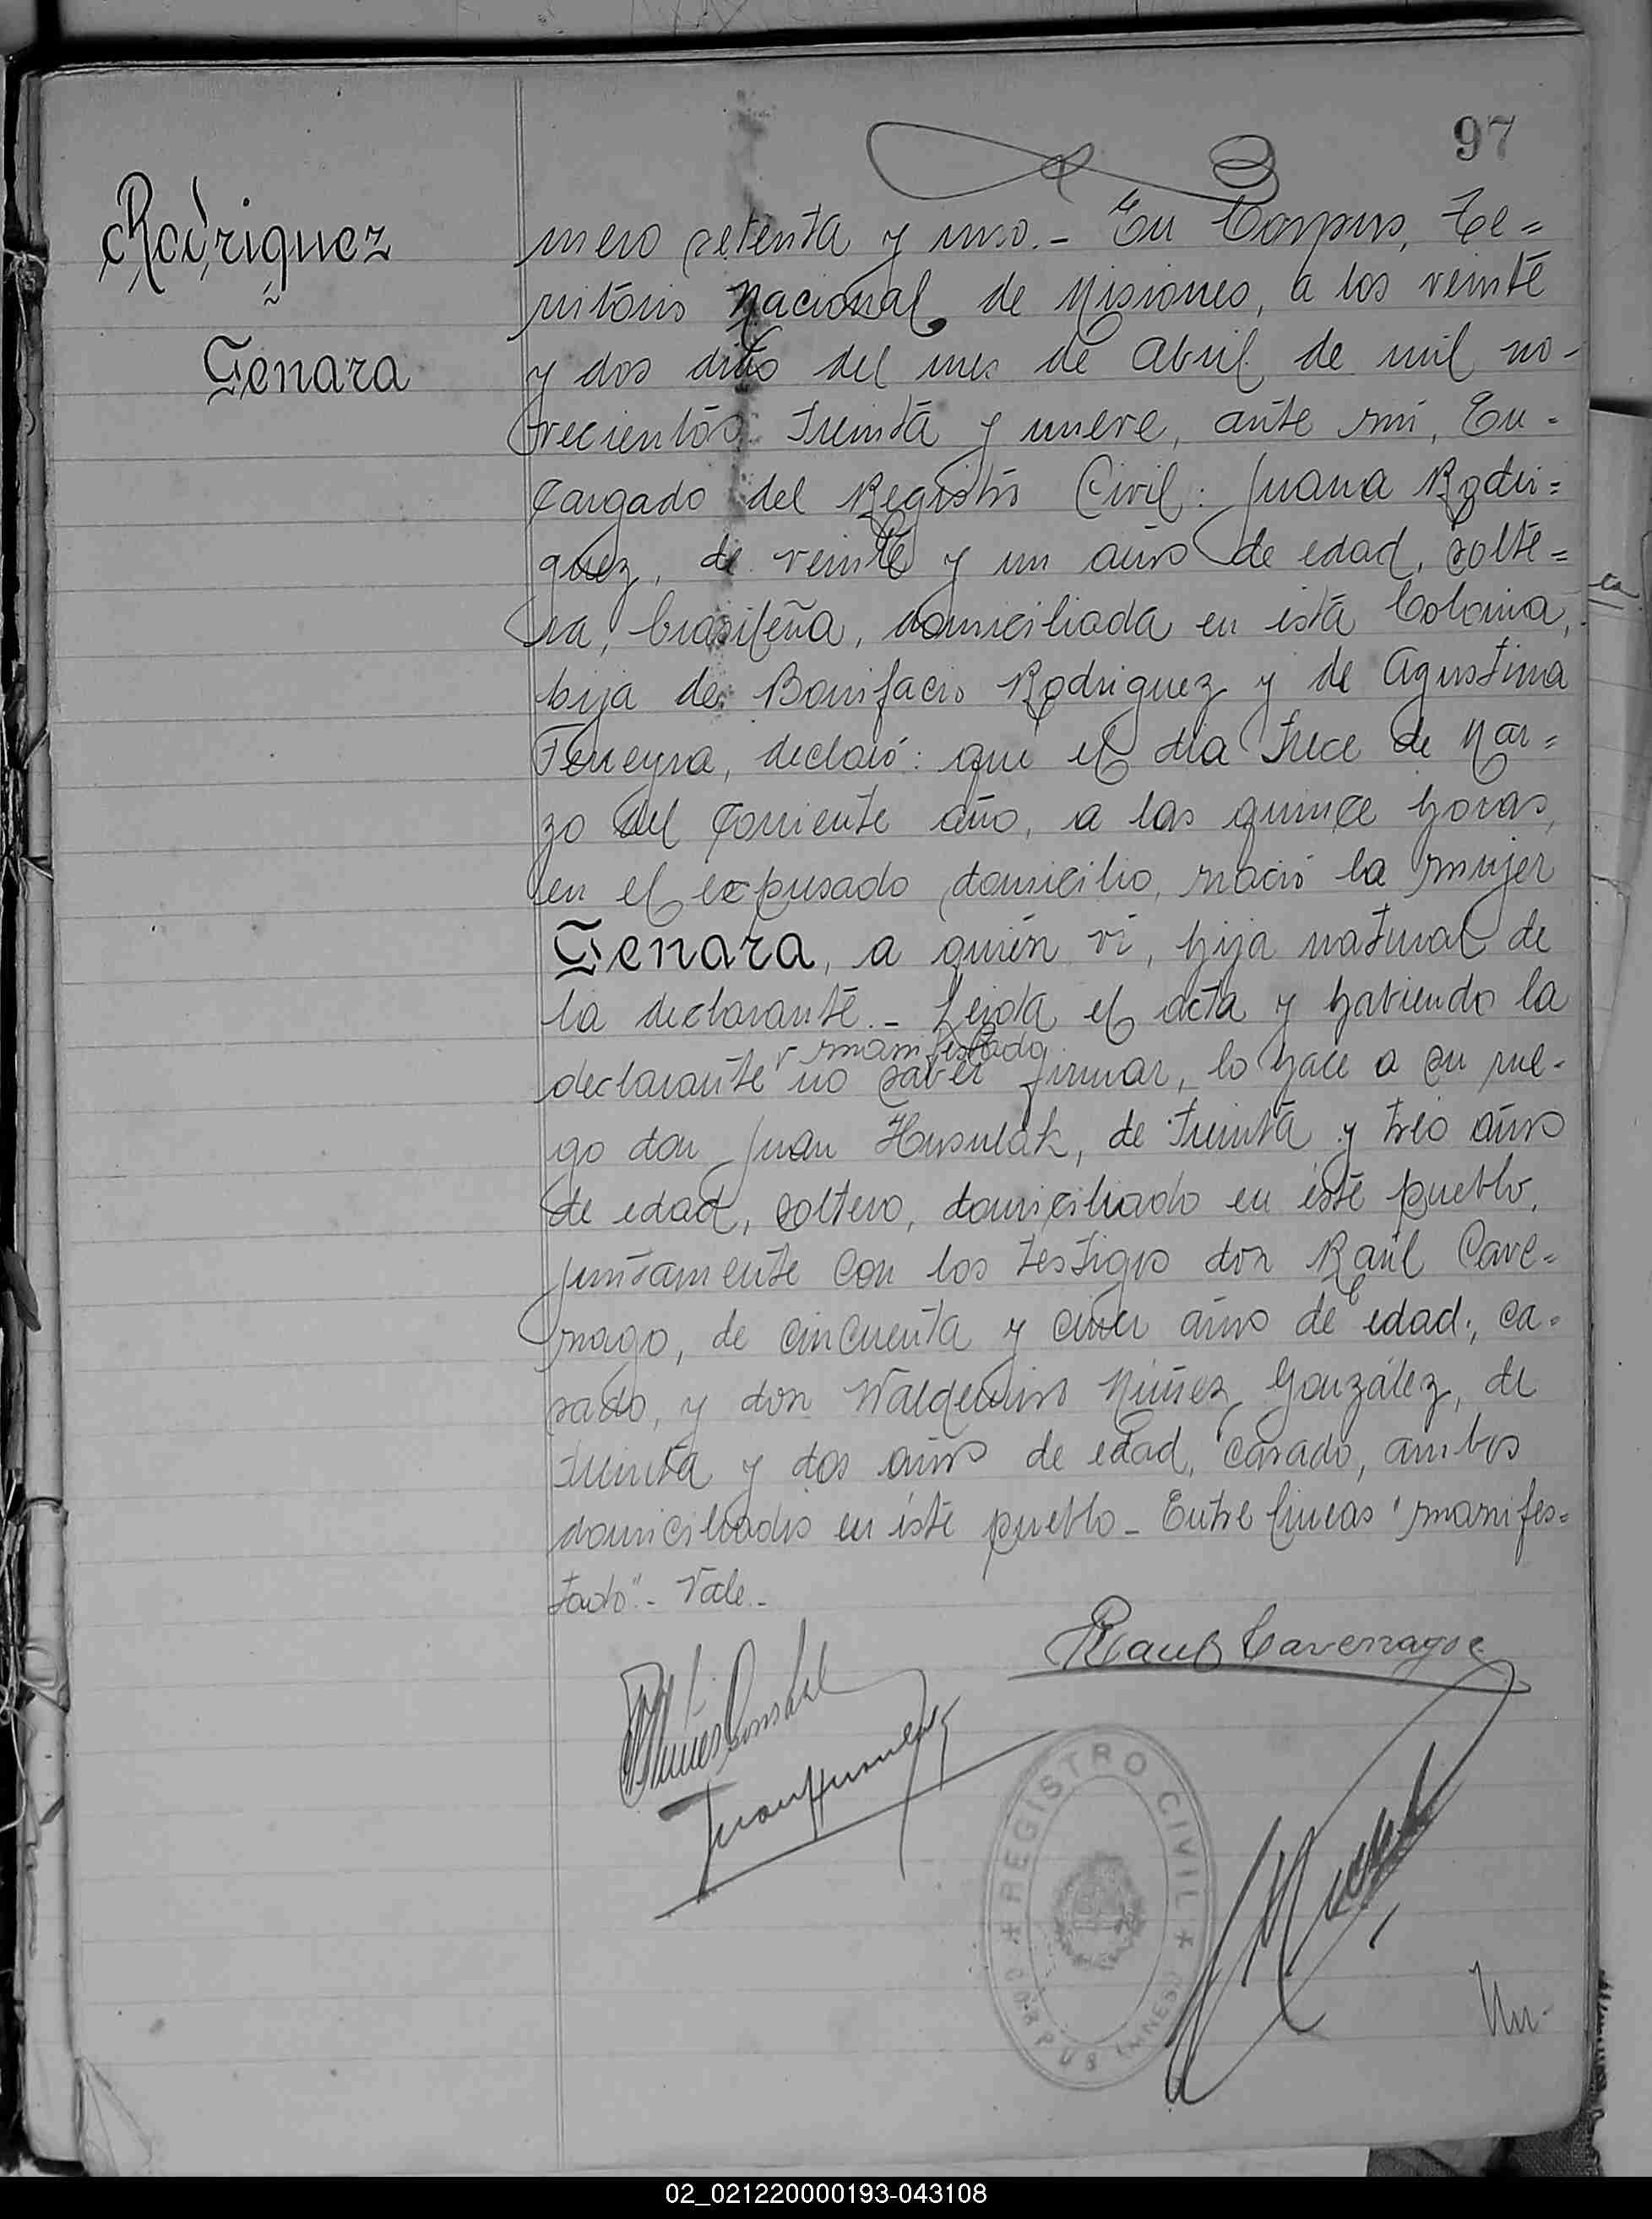 97
Rodriguez
~
Genara
mero setenta y uno.- En Corpus, Te=
rritorio Nacional de Misiones, a los veinte
y dos dias del mes de Abril de mil no-
vecientos treinta y nueve, ante mi, En-
cargado del Registro Civil: Juana Rodri=
guez, de veinte y un años de edad, solte=
ra, brasileña, domiciliada en esta Colonia,
hija de Bonifacio Rodriguez y de Agustina
Ferreyra, declaró: que el dia trece de Mar=
zo del corriente año, a las quince horas,
en el expresado domicilio, nació la mujer
Genara, a quién vi, hija natural de
la declarante.- Leida el acta y habiendo la
manifestado
declarante no saber firmar, lo hace a su rue-
go don Juan Husulak, de treinta y tres años
de edad, soltero, domiciliado en éste pueblo,
juntamente con los testigos don Raúl Cave=
nago, de cincuenta y cinco años de edad, ca-
sado, y don Waldemiro Núñez González, de
treinta y dos años de edad, casado, ambos
domiciliados en éste pueblo - Entre lineas "manifes=
tado".- Vale.-
Raul Cavenago
Juan Husulak
REGISTRO CIVIL
CORPUS (MNES)
Nu-
02_021220000193-043108